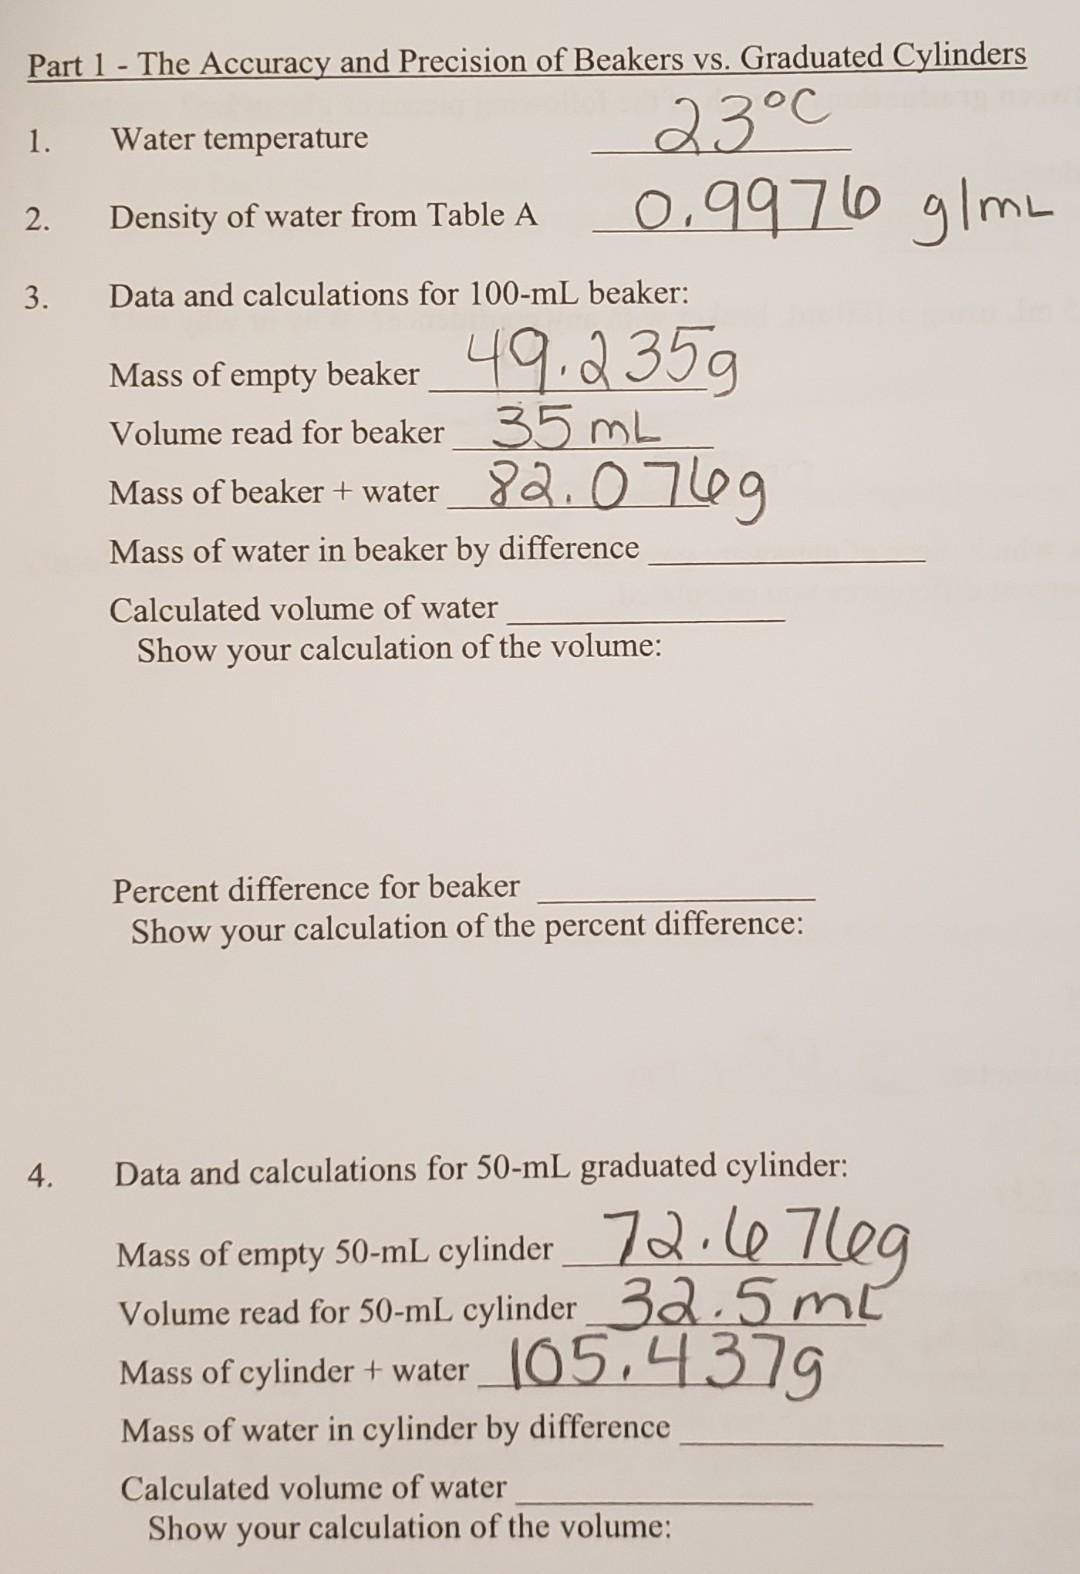 Part 1 - The Accuracy and Precision of Beakers vs. Graduated Cylinders
1. Water temperature 23°C
2. Density of water from Table A 0.9976 g/mL
3. Data and calculations for 100-mL beaker:
Mass of empty beaker 49.235g
Volume read for beaker 35 mL
Mass of beaker + water 82.076g
Mass of water in beaker by difference
Calculated volume of water
Show your calculation of the volume:
Percent difference for beaker
Show your calculation of the percent difference:
4. Data and calculations for 50-mL graduated cylinder:
Mass of empty 50-mL cylinder 72.676g
Volume read for 50-mL cylinder 32.5 mL
Mass of cylinder + water 105.437g
Mass of water in cylinder by difference
Calculated volume of water
Show your calculation of the volume: